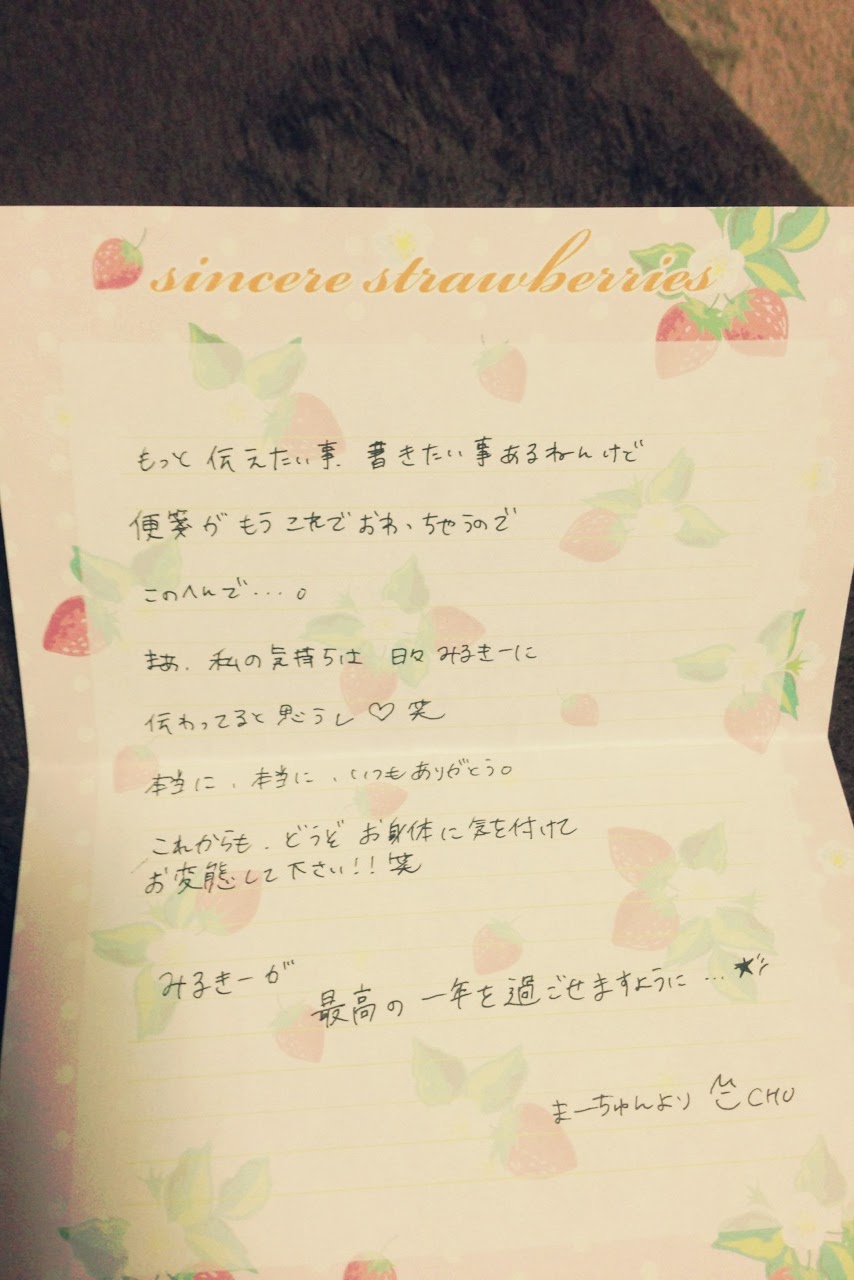 sincere strawberries
もっと 伝えたい事、書きたい事あるねんけど
便箋が もう これで おわっちゃうので
このへんで・・・。
まあ、私の気持ちは 日々 みるきーに
伝わってると思うし♡笑
本当に、本当に、いつもありがとう。
これからも、どうぞ お身体に気を付けて
お変態して下さい!!笑
みるきーが
最高の 一年を過ごせますように…★
まーちゅんより CHU